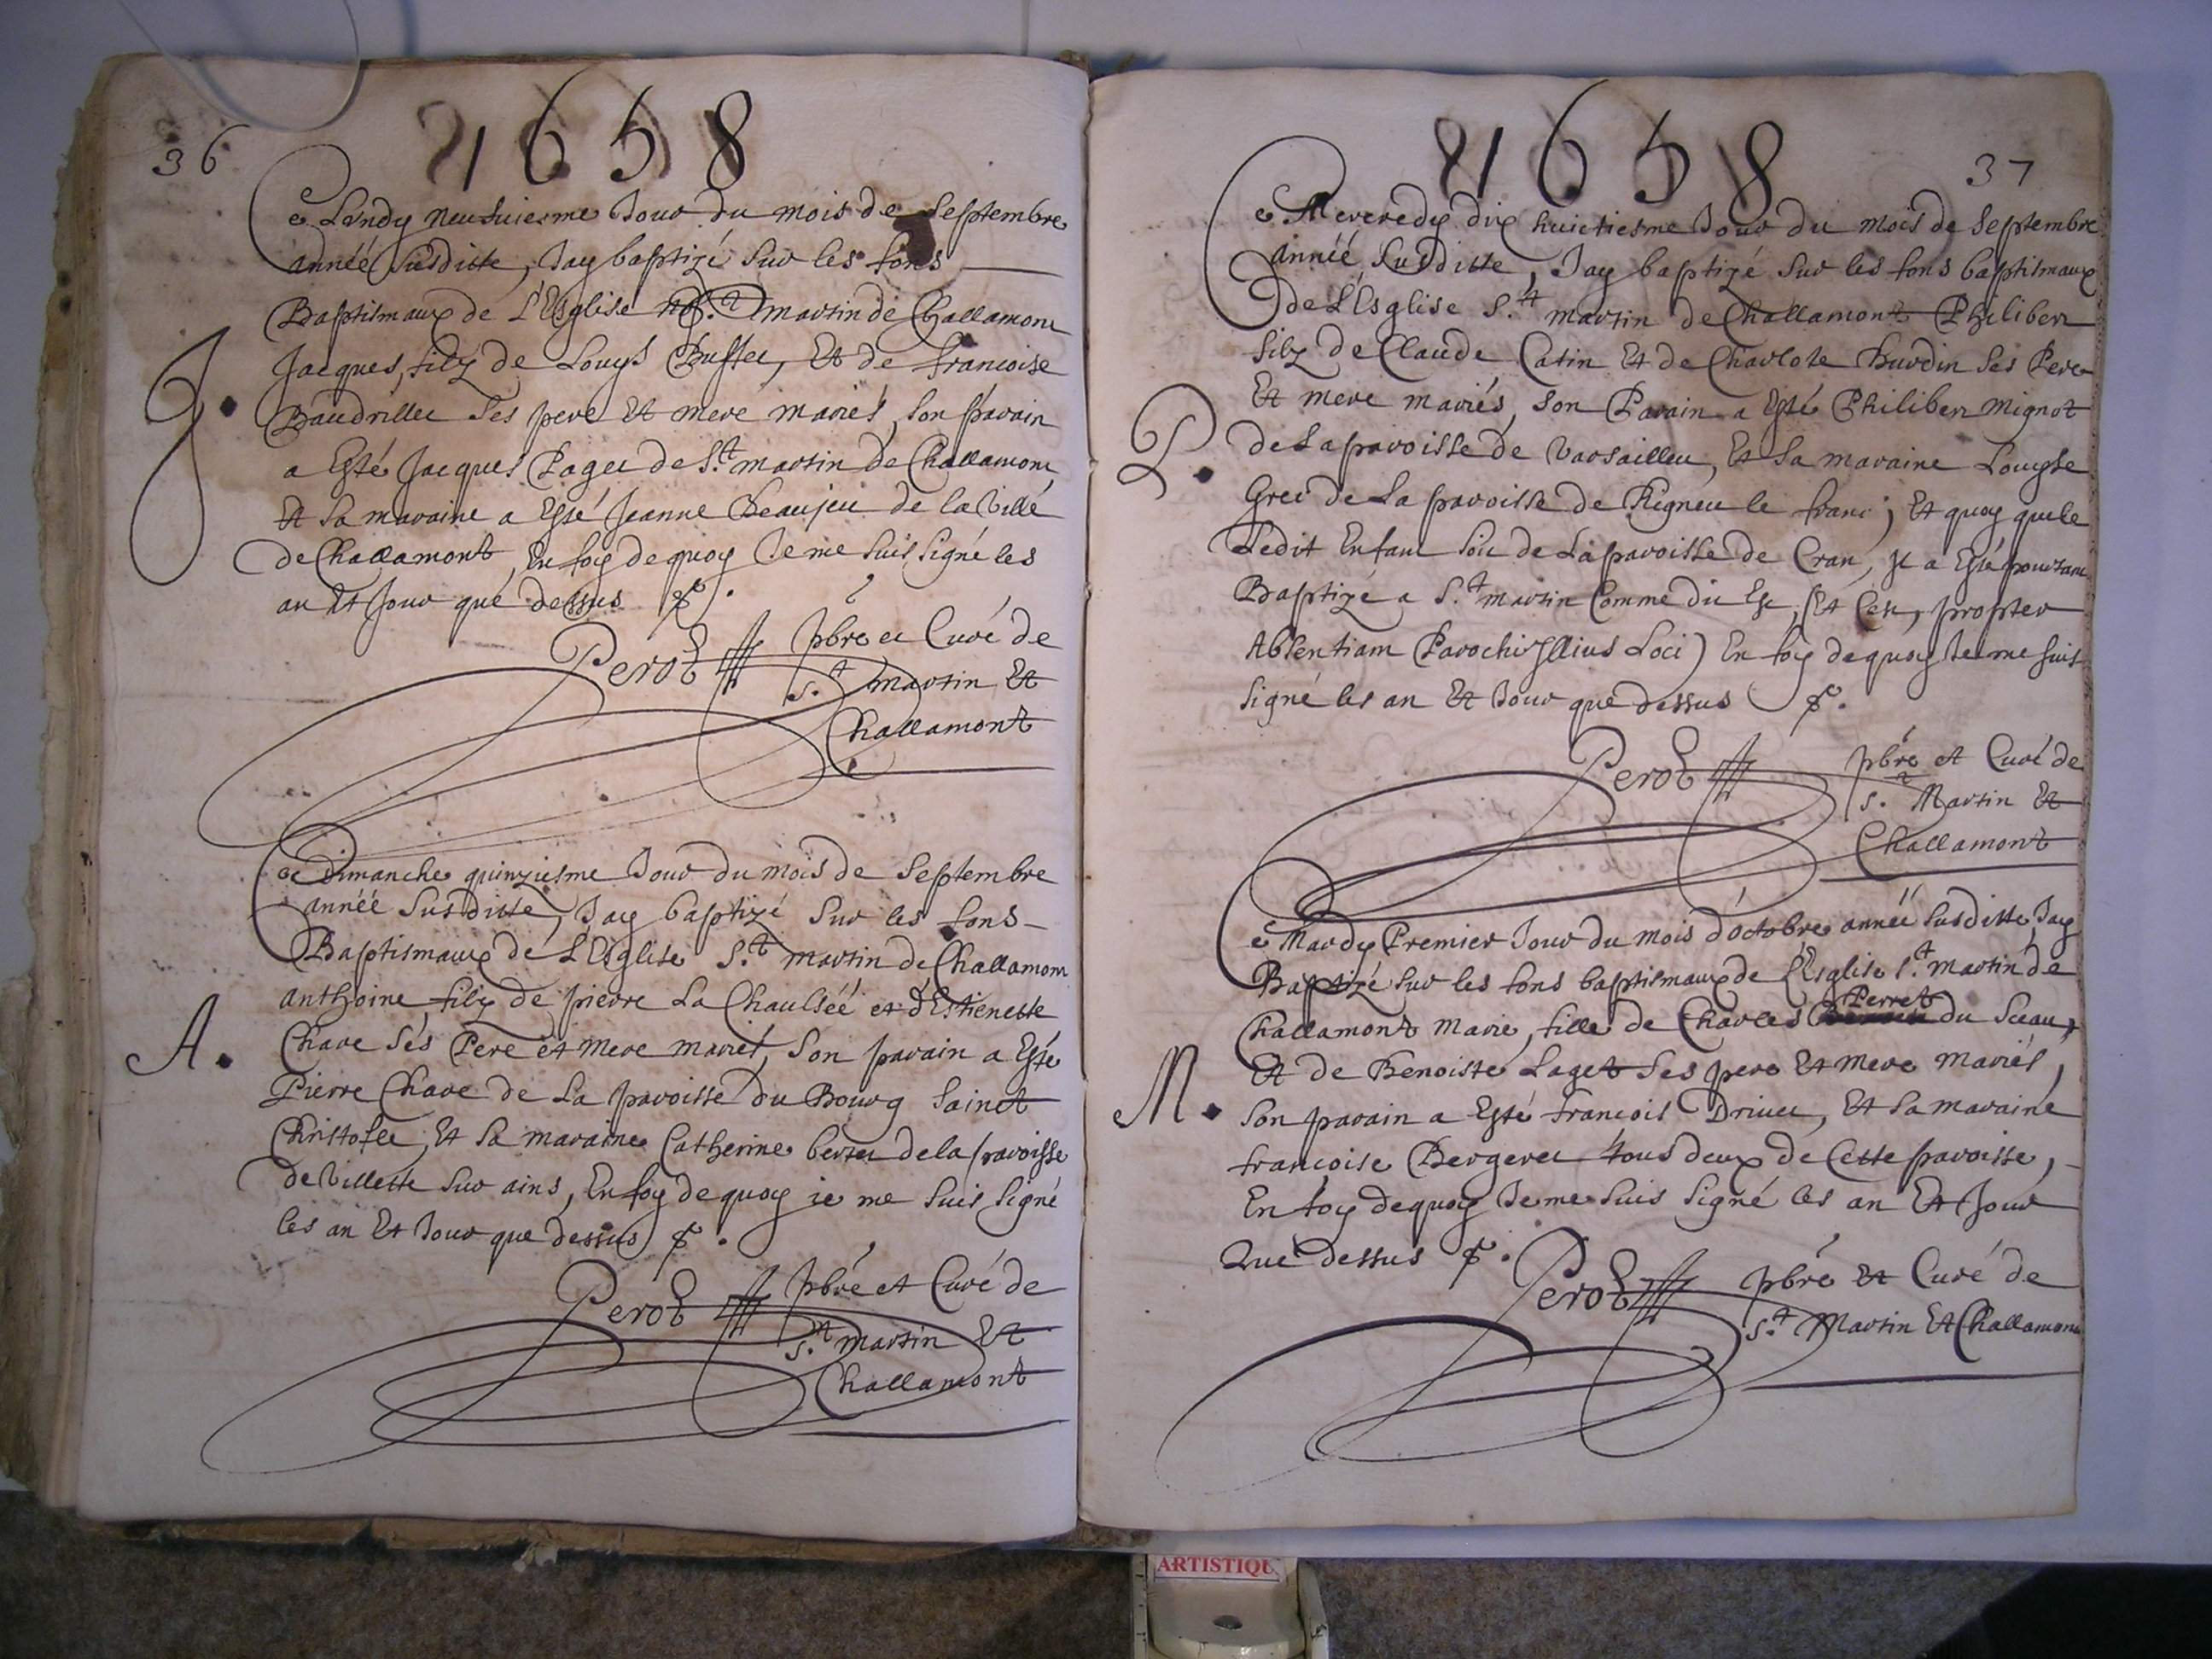 36
1658
Ce Lundy neufuiesme Jour du mois de Septembre
année Susditte, Jay baptizé Sur les fons
Baptismaux de L'Esglise St martin de Challamont
J. Jacques, filz de Louys Buffet, Et de francoise
Baudrillet Ses pere Et mere mariés, Son parain
a Esté Jacques Paget de St martin de Challamont
Et Sa maraine a Esté Jeanne Beaujeu de la Ville
de Challamont, En foy de quoy Je me Suis Signé les
an Et Jour que dessus
Perot pbre et Curé de
St martin Et
Challamont
Ce Dimanche quinziesme Jour du mois de Septembre
année Susditte, Jay baptizé Sur les fons
Baptismaux de L'Esglise St martin de Challamont
anthoine, filz de pierre La Chaulsée et d'Estienette
A. Chave Ses Pere et Mere mariés, Son parain a Esté
Pierre Chave de La paroisse du Bourg Sainct
Christofle, Et Sa maraine Catherine de la paroisse
de Villette Sur ains, En foy de quoy ie me Suis Signé
les an Et Jour que dessus
Perot pbre et Curé de
St martin Et
Challamont
37
1658
Ce Mercredy dix huictiesme Jour du mois de Septembre
année Susditte, Jay baptizé Sur les fons baptismaux
de L'Esglise St martin de Challamont Philibert
filz de Claude Catin Et de Charlote Burdin Ses Pere
Et mere mariés, Son Parain a Esté Philibert Mignot
P. de La paroisse de Varsailleu, Et Sa maraine Louyse
Gret de La paroisse de Rigneu le franc; Et quoy que le
Ledit Enfant Soit de La paroisse de Cran, Il a Esté pourtant
Baptizé a St martin Comme dit Est, (Et Cest, propter
Absentiam Parochi Illius Loci) En foy de quoy Je me suis
Signé les an Et Jour que dessus
Perot pbre et Curé de
St Martin Et
Challamont
Ce Mardy Premier Jour du mois d'octobre année Susditte, Jay
Baptizé Sur les fons baptismaux de L'Esglise St martin de
Challamont Marie, fille de Charles Perret du Sceau,
Et de Benoiste Laget Ses pere Et Mere Mariés,
M. Son parain a Esté francois Drivet, Et Sa maraine
francoise Bergeret tous deux de Cette paroisse,
En foy de quoy Je me Suis Signé les an Et Jour
Que dessus
Perot pbre Et Curé de
St Martin Et Challamont
ARTISTIQU